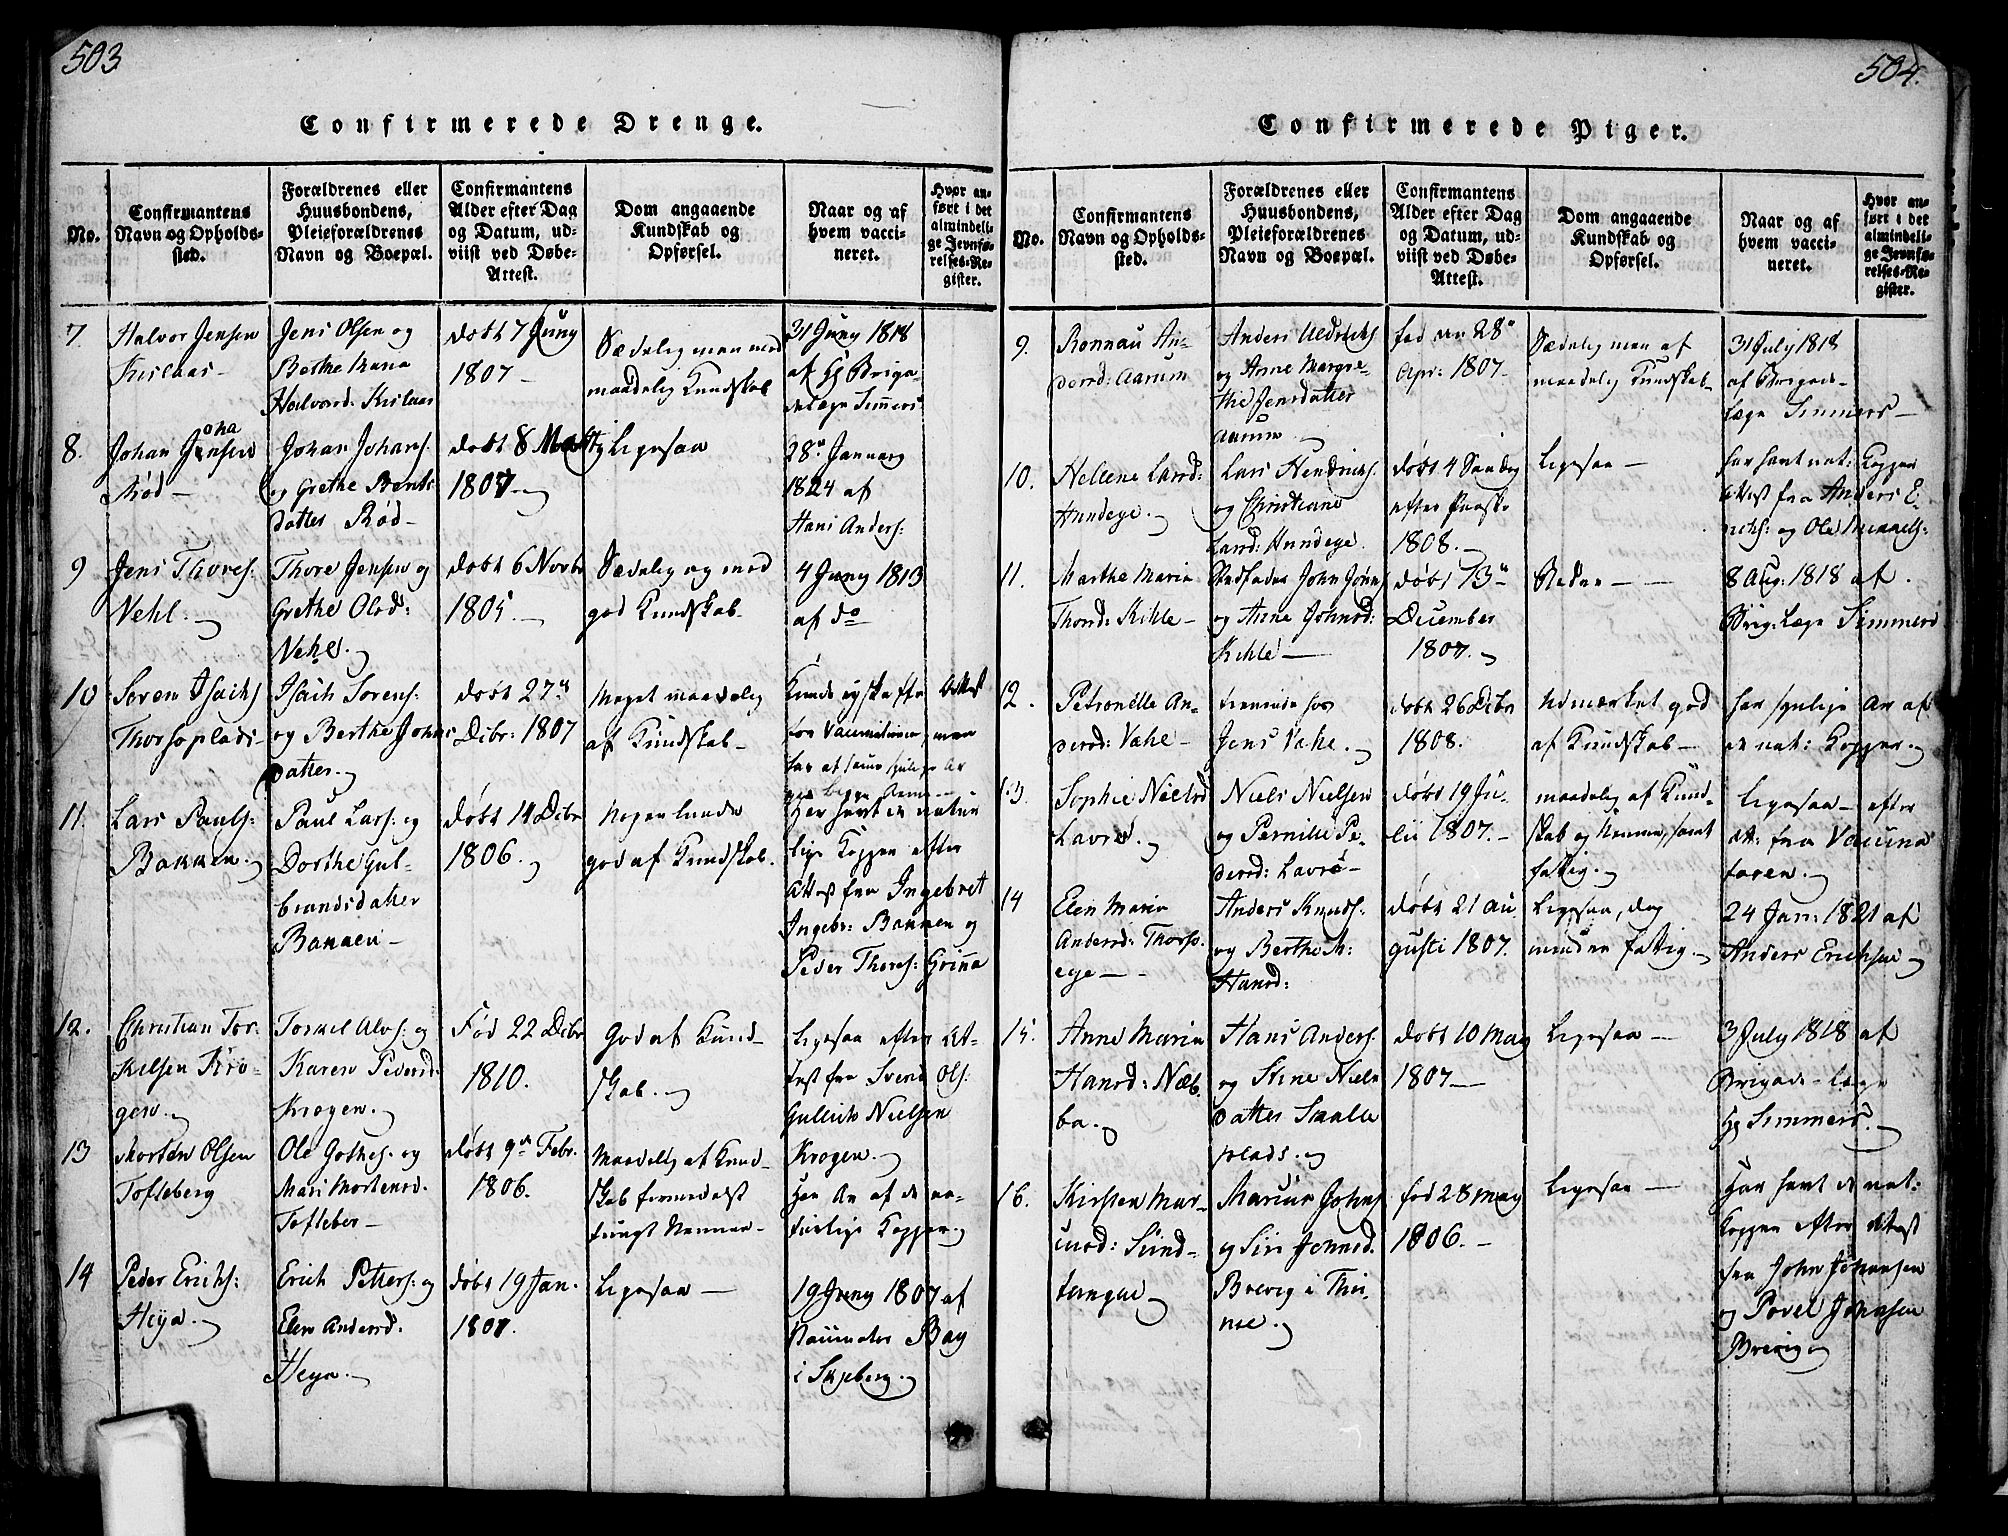 503
Confirmerede Drenge.
No.
Confirmantens Navn og Opholdssted.
Forældrenes eller Huusbondens, Pleieforældrenes Navn og Boepæl.
Confirmantens Alder efter Dag og Datum, udviist ved Døbe-Attest.
Dom angaaende Kundskab og Opførsel.
Naar og af hvem vaccineret.
Hvor anført i det almindelige Jevnførelses-Register.
7
Halvor Jensen
Kislaas -
Jens Olsen og
Berthe Maria
Halvord: Kislaas
døbt 7 Juny
1807 -
Sædelig men med
maadelig Kundskab
31 Juny 1818
af Hg Briga-
delæge Simmers
8.
Johan Johansen
Rød -
Johan Johans:
og Grethe Bents
datter Rød -
døbt 8 Marty
1807 -
Ligesaa
28de January
1824 af
Hans Anders:
9
Jens Thores:
Vehl:
Thore Jensen og
Grethe Olsd:
Vehle.
døbt 6 Novbr
1805. -
Sædelig og med
god Kundskab
4 Juny 1813
af do
10
Søren Isachs
Thorsøplads -
Isach Sørens:
og Berthe Johns
datter.
døbt 27de
Decbr: 1807
Meget maadelig
af Kundskab -
men
begge Arme -
11.
Lars Pauls:
Bakken.
Paul Lars: og
Dorthe Gul-
brandsdatter
Bakken -
døbt 14 Decbr
1806.
Nogenlunde
god af Kundskab.
Har havt de natur
lige Kopper efter
Attest fra Ingebret
Ingebr: Bakken og
Peder Thores: Grina
12.
Christian Tor-
kelsen Kro-
gen.
Torkel Alvs: og
Karen Pedersd:
Krogen.
Fød 22 Decbr
1810.
God af Kund-
skab.
Ligesaa efter At-
test fra Svend Ols:
Gullich Nielsen
Krogen.
13
Morten Olsen
Tofteberg
Ole Gothes: og
Mari Mortensd.
Tofteber -
døbt 9de Febr.
1806.
Maadelig af Kund-
skab formedelst
tungt Nemme -
Har Ar af de na-
turlige Kopper.
14
Peder Erichs:
Heya.
Erich Petters: og
Elen Andersd.
Heya.
døbt 19 Jan.
1807.
Ligesaa -
19 Juny 1807 af
Bay
i Skjeberg.
504.
Confirmerede Piger.
No.
Confirmantens Navn og Opholdssted.
Forældrenes eller Huusbondens, Pleieforældrenes Navn og Boepæl.
Confirmantens Alder efter Dag og Datum, udviist ved Døbe-Attest.
Dom angaaende Kundskab og Opførsel.
Naar og af hvem vaccineret.
Hvor anført i det almindelige Jevnførelses-Register.
9.
Ronnau An-
dersd: Aarum
Anders Uldrichs
og Anne Margre-
the Jensdatter
Aarum
fød 28de
Apr: 1807.
Sædelig men af
maadelig Kundskab -
31 July 1818
af Brigade-
Læge Simmers -
10.
Hellene Larsd:
Hundege.
Lars Hendrichs:
og Christiane
Larsd: Hundege.
døbt 4 Søndag
efter Paaske
1808. -
Ligesaa -
har havt nat: Kopper
Attest fra Anders E-
richs: og Ole
11.
Marthe Maria
Thorsd: Kihle -
Stedfader John Jøns
og Anne Johnsd:
Kihle -
døbt 13de
December
1807.
8 Aug: 1818 af
Brig: Læge Simmers
12.
Petronelle An-
dersd: Vahe -
tienende hos
Jens Vahe.
døbt 26 Decbr
1808.
Udmærket god
af Kundskab -
har synlige Ar af
de nat: Kopper.
13.
Sophie Nielsd
Lavrø.
Niels Nielsen
og Pernille Pe-
dersd: Lavrø -
døbt 19 Ju-
lii 1807. -
maadelig af Kund-
skab og Nemme, samt
fattig.
Ligesaa - efter
Att: fra Vaccina
toren.
14
Elen Maria
Andersd: Thorsø-
ege -
Anders Knuds:
og Berthe M:
Hansd:
døbt 21 Au
gusti 1807.
Ligesaa, dog
mindre fattig.
24 Jan: 1821 af
Anders Erichsen
15.
Anne Maria
Hansd: Næb-
ba.
Hans Anders:
og Stine Niels
datter Saatle
plads.
døbt 10 May
1807 -
Ligesaa -
3 July 1818 af
Brigade-Læge
Hg Simmers.
16.
Kirsten Mar-
cusd: Sund-
tangen
Marcus Johns
og Siri Johnsd.
Brevig i Thu-
nøe.
fød 28 May
1806. -
Ligesaa -
Har havt de nat:
Kopper efter Attest
fra John Johansen
og Povel Johnsen
Brevig